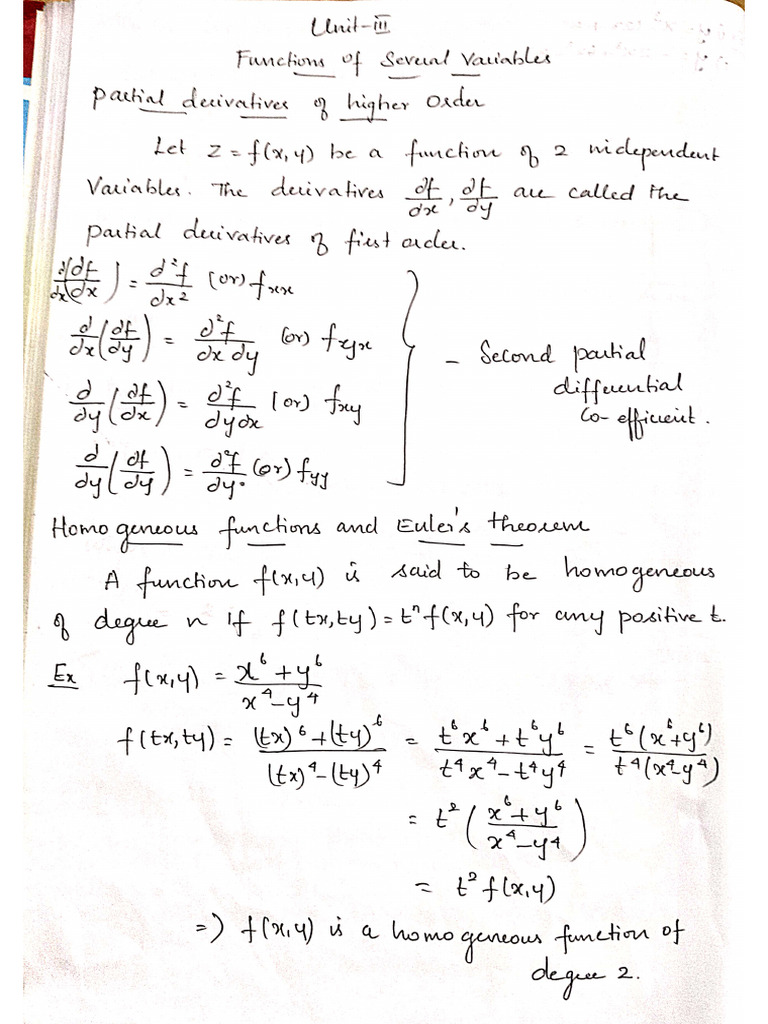 Unit-III
Functions of Several Variables
Partial derivatives of higher Order
Let z = f(x,y) be a function of 2 independent
Variables. The derivatives ∂f/∂x, ∂f/∂y are called the
partial derivatives of first order.
∂/∂x(∂f/∂x) = ∂²f/∂x² (or) fxx
∂/∂x(∂f/∂y) = ∂²f/∂x∂y (or) fyx
∂/∂y(∂f/∂x) = ∂²f/∂y∂x (or) fxy
∂/∂y(∂f/∂y) = ∂²f/∂y² (or) fyy
- Second partial
differential
co-efficient.
Homogeneous functions and Euler's theorem
A function f(x,y) is said to be homogeneous
of degree n if f(tx,ty) = tⁿf(x,y) for any positive t.
Ex f(x,y) = (x⁶+y⁶)/(x⁴-y⁴)
f(tx,ty) = ((tx)⁶+(ty)⁶)/((tx)⁴-(ty)⁴) = (t⁶x⁶+t⁶y⁶)/(t⁴x⁴-t⁴y⁴) = t⁶(x⁶+y⁶)/t⁴(x⁴-y⁴)
= t²((x⁶+y⁶)/(x⁴-y⁴))
= t² f(x,y)
=) f(x,y) is a homogeneous function of
degree 2.